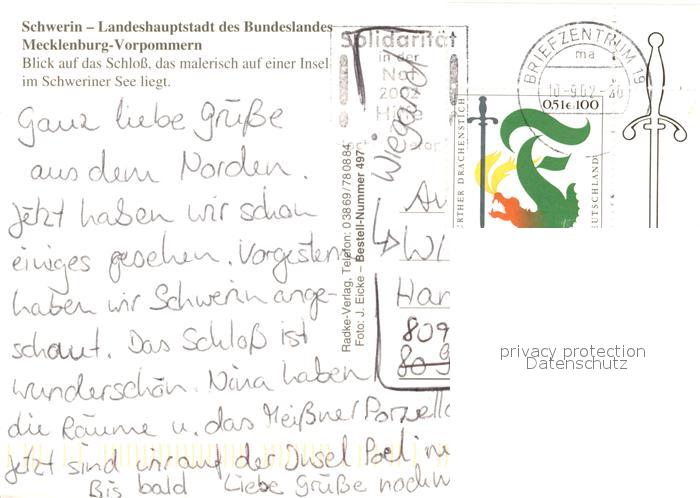 Schwerin – Landeshauptstadt des Bundeslandes
Mecklenburg-Vorpommern
Blick auf das Schloß, das malerisch auf einer Insel
im Schweriner See liegt.
Ganz liebe Grüße
aus dem Norden.
Jetzt haben wir schon
einiges gesehen. Vorgestern
haben wir Schwerin ange-
schaut. Das Schloß ist
wunderschön. Nina haben
die Räume u. das Meißner Porzella
Jetzt sind wir auf der Insel Poel
Bis bald Liebe Grüße nochm
Radke-Verlag, Telefon: 03869/780884
Foto: J. Eicke – Bestell-Nummer 497
Solidarität
in der
Not
2002
BRIEFZENTRUM 19
ma
10.-9.02.-20
0,51€ 100
ERTHER DRACHENSTICH
EUTSCHLAND
Wiegand
Wi
Han
809
809
privacy protection
Datenschutz